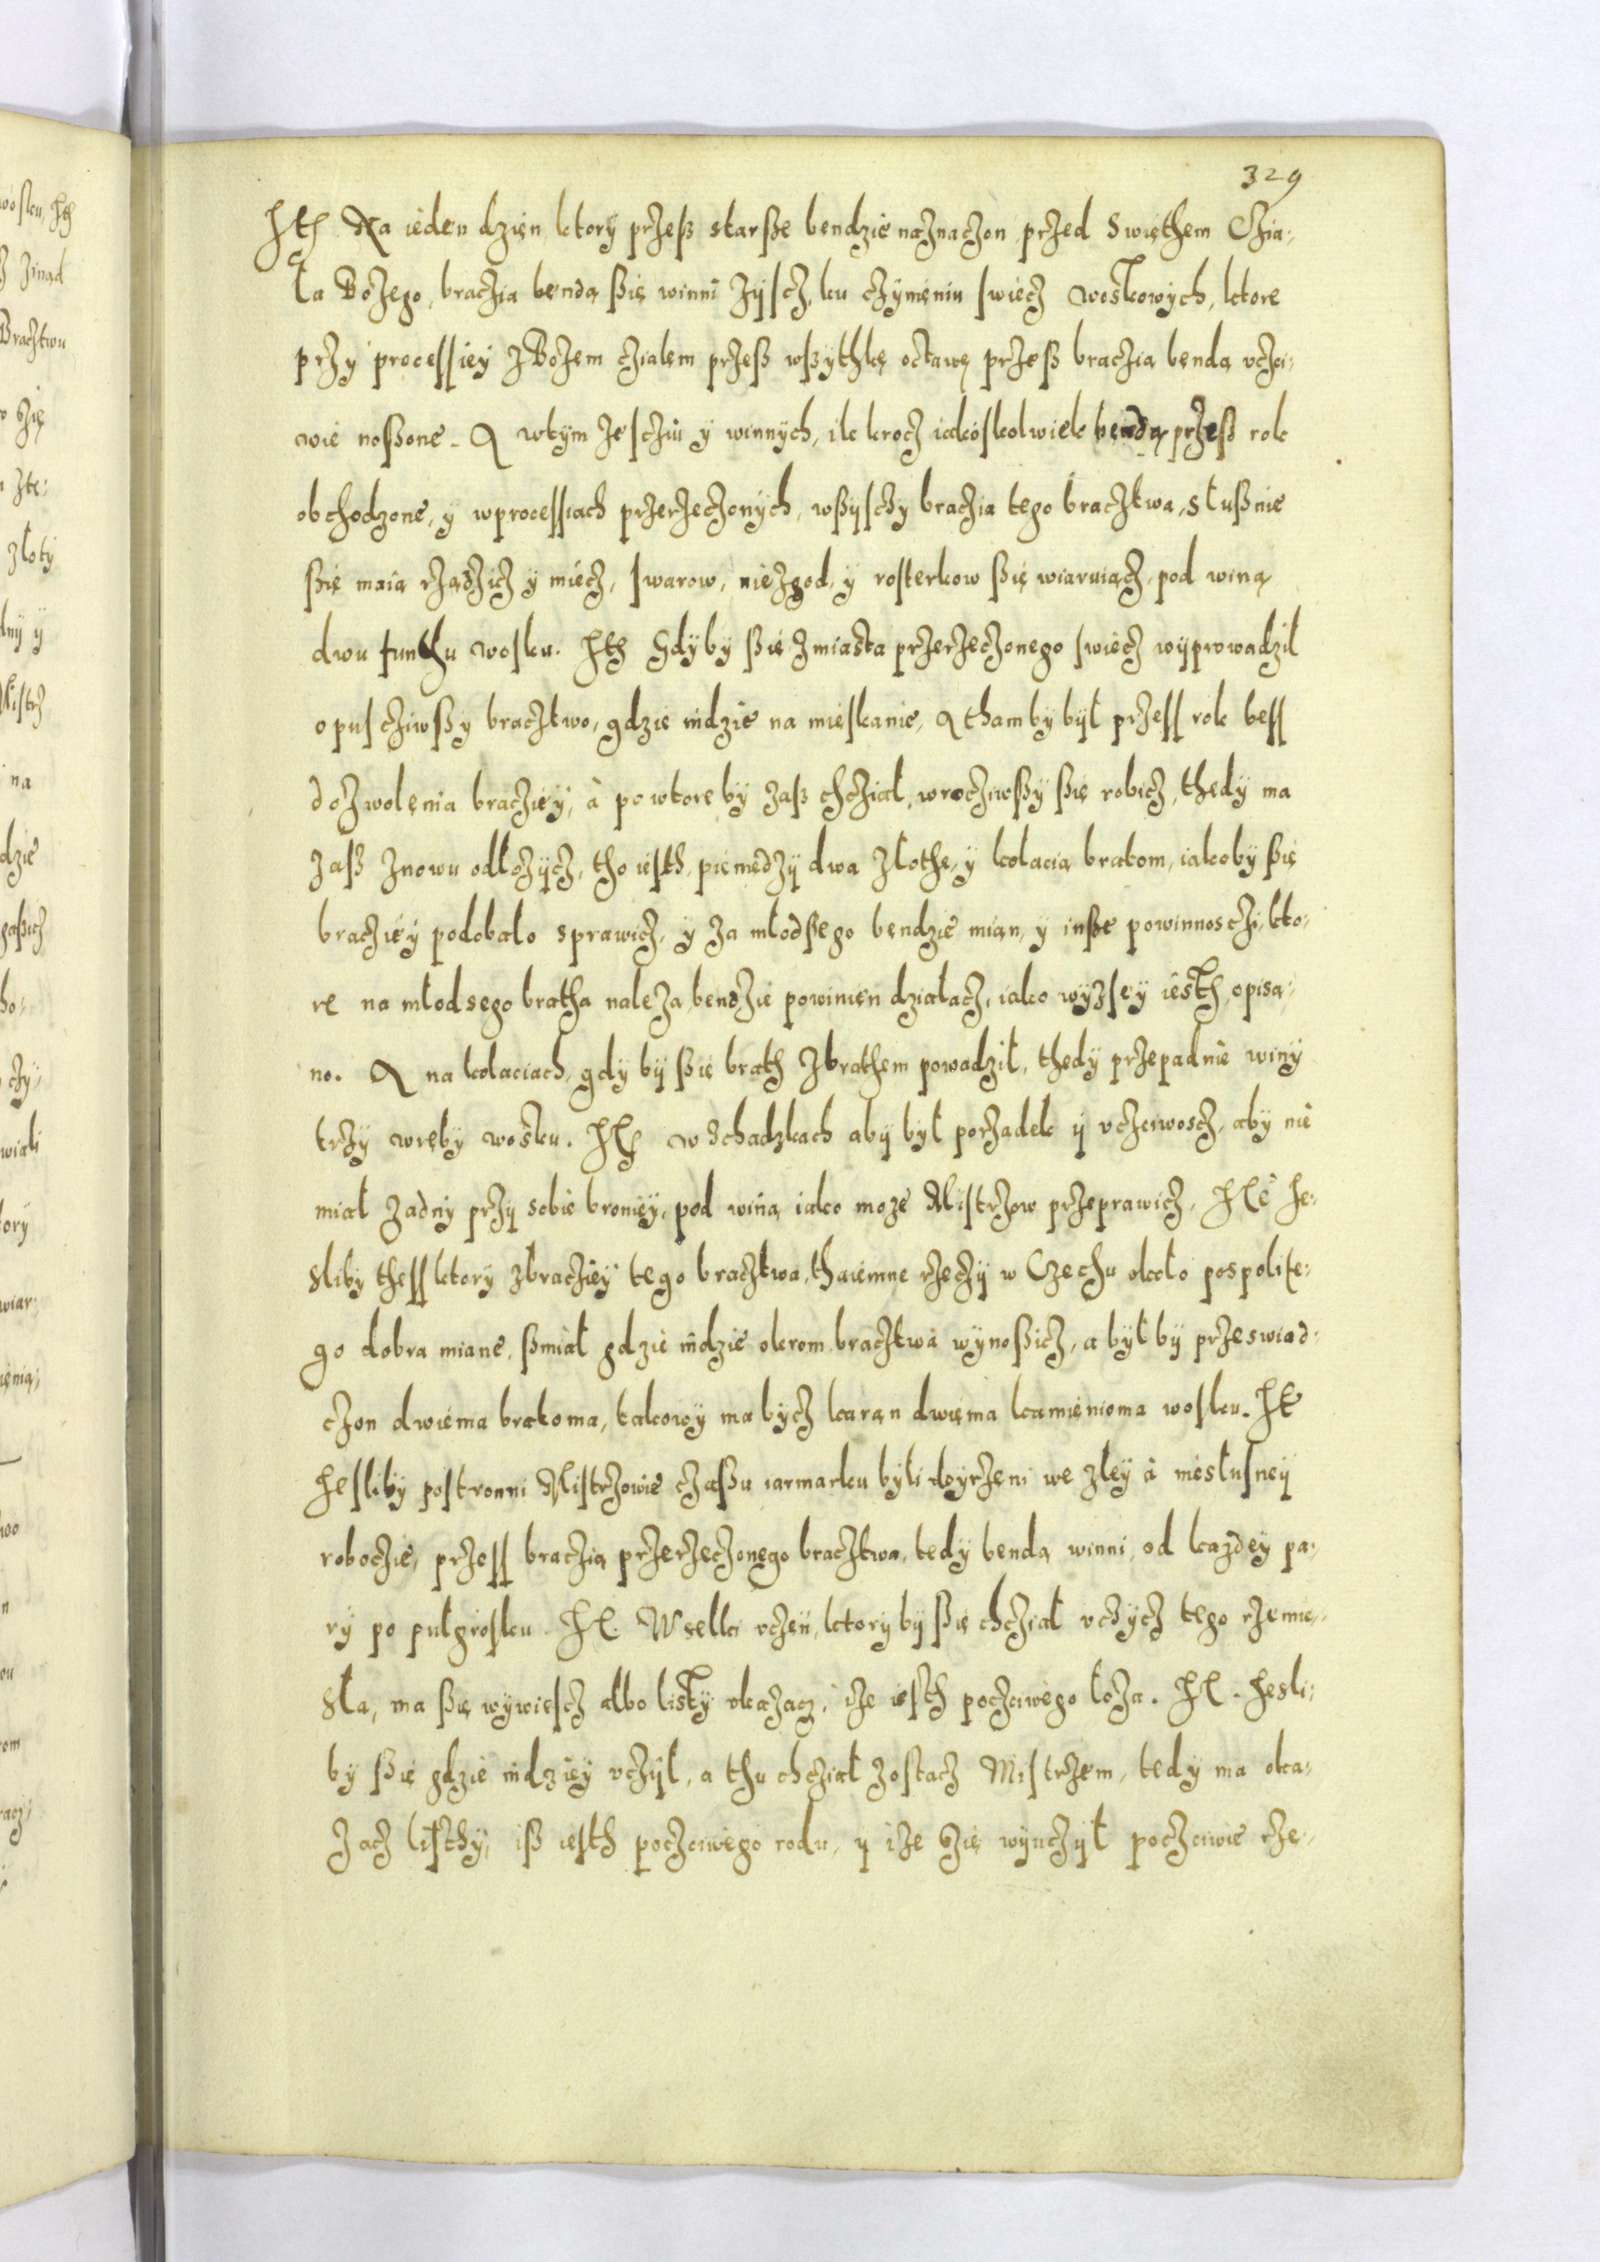 329
Jth Na ieden dzięn ktory przeß starße bendzie naznaczon przed Swięthem Czia:
ła Bożego, braczia bendą ßię winni zyscz, ku czynięniu swiecz woskowych, ktore
przy processiey z Bożem czialem przeß wßythkę octawę przeß braczią bendą vczci:
wie noßone. A wtym ze scziu y winnych, ile krocz iakoskolwiek bendą przeß rok
obchodzone, y w processiach przerzeczonych, wßyschy braczia tego bracztwa, słußnie
ßię maią rządzicz y miecz, swarow, niezgod, y rosterkow ßię wiaruiącz, pod winą
dwu funthu wosku. Jth Gdyby ßię z miasta przerzeczonego swiecz wyprowadził
opuscziwßy bracztwo, gdzie indzie na mieskanie, A tham by był przess rok bess
dozwolęnia braczięy, à powtore by zaß chcział, wrocziwßy ßię robicz, thedy ma
zaß znowu odłożycz, tho iesth, pięniedzy dwa złothe, y kolacią bratom, iakoby ßię
braczięy podobało sprawicz, y za młodßego bendzie mian, y inße powinnosczi, kto:
re na młodsego bratha należą, bendzie powinięn działacz, iako wyzsey iesth opisa:
no. A na kolaciach, gdy by ßię brath z brathem powadził, thedy przepadnie winy
trzy wręby wosku. Jth w schadzkach aby był porządek y vczciwoscz, aby nie
miał żadny przy sobie broniey, pod winą iako może Mistrzow przeprawicz, Jth Je:
sliby thess ktory z braczięy tego bracztwa, thaiemne rzeczy w Czechu około pospolite:
go dobra miane, ßmiał gdzie indzie okrom bracztwa wynoßicz, a był by przeswiad:
czon dwiema bratoma, takowy ma bycz karan dwięma kamięnioma wosku. Jt
Jesliby postronni Mistrzowie czaßu iarmarku byli doyrzeni we zley à niesłusney
roboczie, przess braczią przerzeczonego bracztwa, tedy bendą winni, od kazdey pa:
ry po pułgrosku. Jt. Wselki vczęń, ktory by ßię chcział vczycz tego rzemie:
sła, ma ßię wywiescz albo listy vkazacz, iże iesth poczciwego łoża. Jt. Jesli:
by ßię gdzie indziey vczył, a thu chcział zostacz Mistrzem, tedy ma oka:
zacz listhy, iß iesth poczciwego rodu, y iże się wyuczył poczciwie rze: